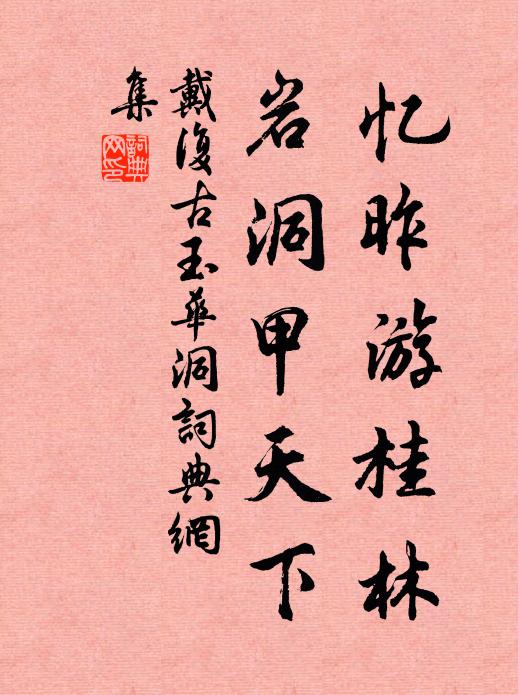 忆昨游桂林
岩洞甲天下
戴復古玉華洞詞典網
集
詞典網印